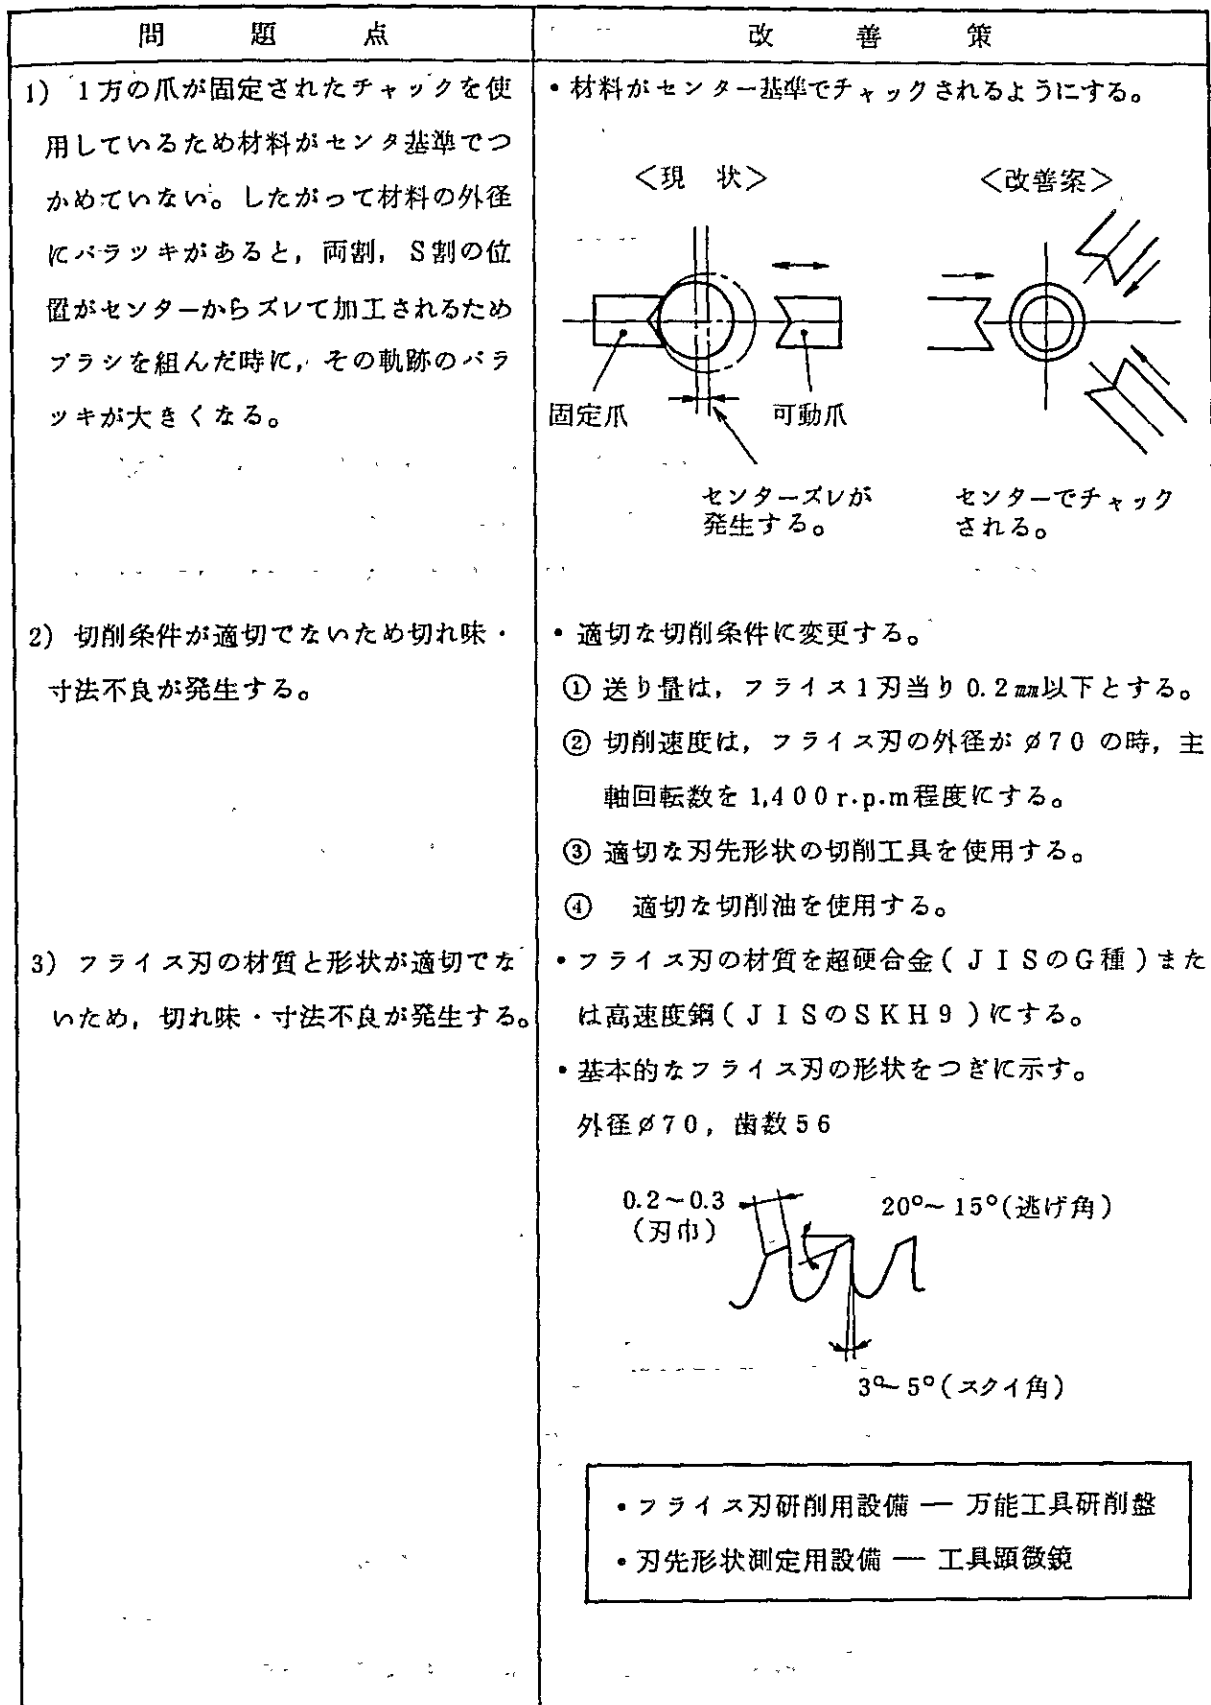 問題点
改善策
1) 1方の爪が固定されたチャックを使
用しているため材料がセンタ基準でつ
かめていない。したがって材料の外径
にバラツキがあると，両割，S割の位
置がセンターからズレて加工されるため
ブラシを組んだ時に，その軌跡のバラ
ツキが大きくなる。
・材料がセンター基準でチャックされるようにする。
＜現状＞
＜改善案＞
固定爪
可動爪
センターズレが
発生する。
センターでチャック
される。
2) 切削条件が適切でないため切れ味・
寸法不良が発生する。
・適切な切削条件に変更する。
① 送り量は，フライス1刃当り0.2㎜以下とする。
② 切削速度は，フライス刃の外径がø70の時，主
軸回転数を1,400r.p.m程度にする。
③ 適切な刃先形状の切削工具を使用する。
④ 適切な切削油を使用する。
3) フライス刃の材質と形状が適切でな
いため，切れ味・寸法不良が発生する。
・フライス刃の材質を超硬合金(JISのG種)また
は高速度鋼(JISのSKH9)にする。
・基本的なフライス刃の形状をつぎに示す。
外径ø70，歯数56
0.2～0.3
(刃巾)
20°～15°(逃げ角)
3°～5°(スクイ角)
・フライス刃研削用設備 ― 万能工具研削盤
・刃先形状測定用設備 ― 工具顕微鏡